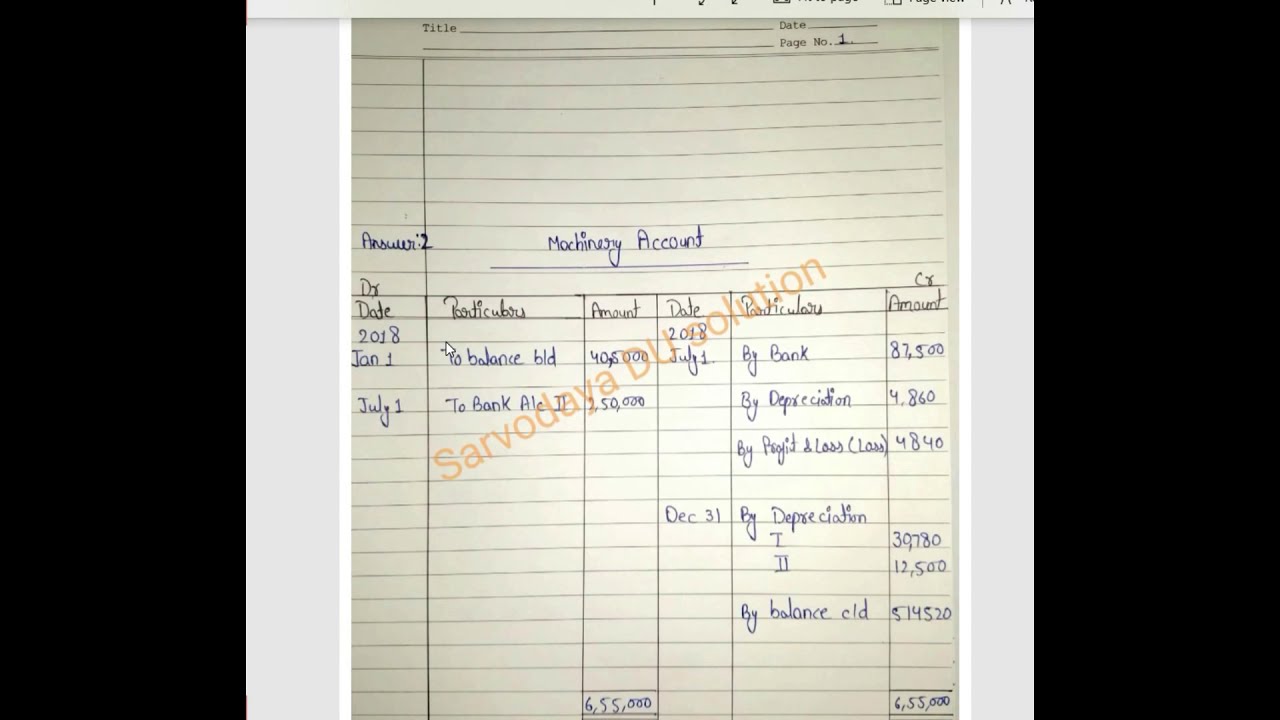 Title Date
Page No. 1.
Answer:2 Machinery Account
Dr Cr
Date Particulars Amount Date Particulars Amount
2018 2018
Jan 1 To balance b/d 405000 July 1. By Bank 87,500
July 1 To Bank A/c II 2,50,000 By Depreciation 4,860
By Profit & Loss (Loss) 4840
Dec 31 By Depreciation
I 30,780
II 12,500
By balance c/d 514520
6,55,000 6,55,000
Sarvodaya DU solution